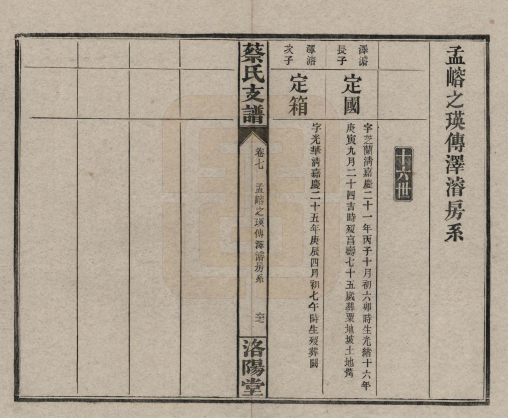 孟嵱之瑛傳澤濬房系
十六世
澤濬
長子
定國
字芝蘭淸嘉慶二十一年丙子十月初六卯時生光緒十六年
庚寅九月二十四吉時歿享壽七十五歲葬粟地坡土地
澤濬
次子
定箱
字光華淸嘉慶二十五年庚辰四月初七午時生歿葬闕
蔡氏支譜
卷七
孟嵱之瑛傳澤濬房系
洛陽堂